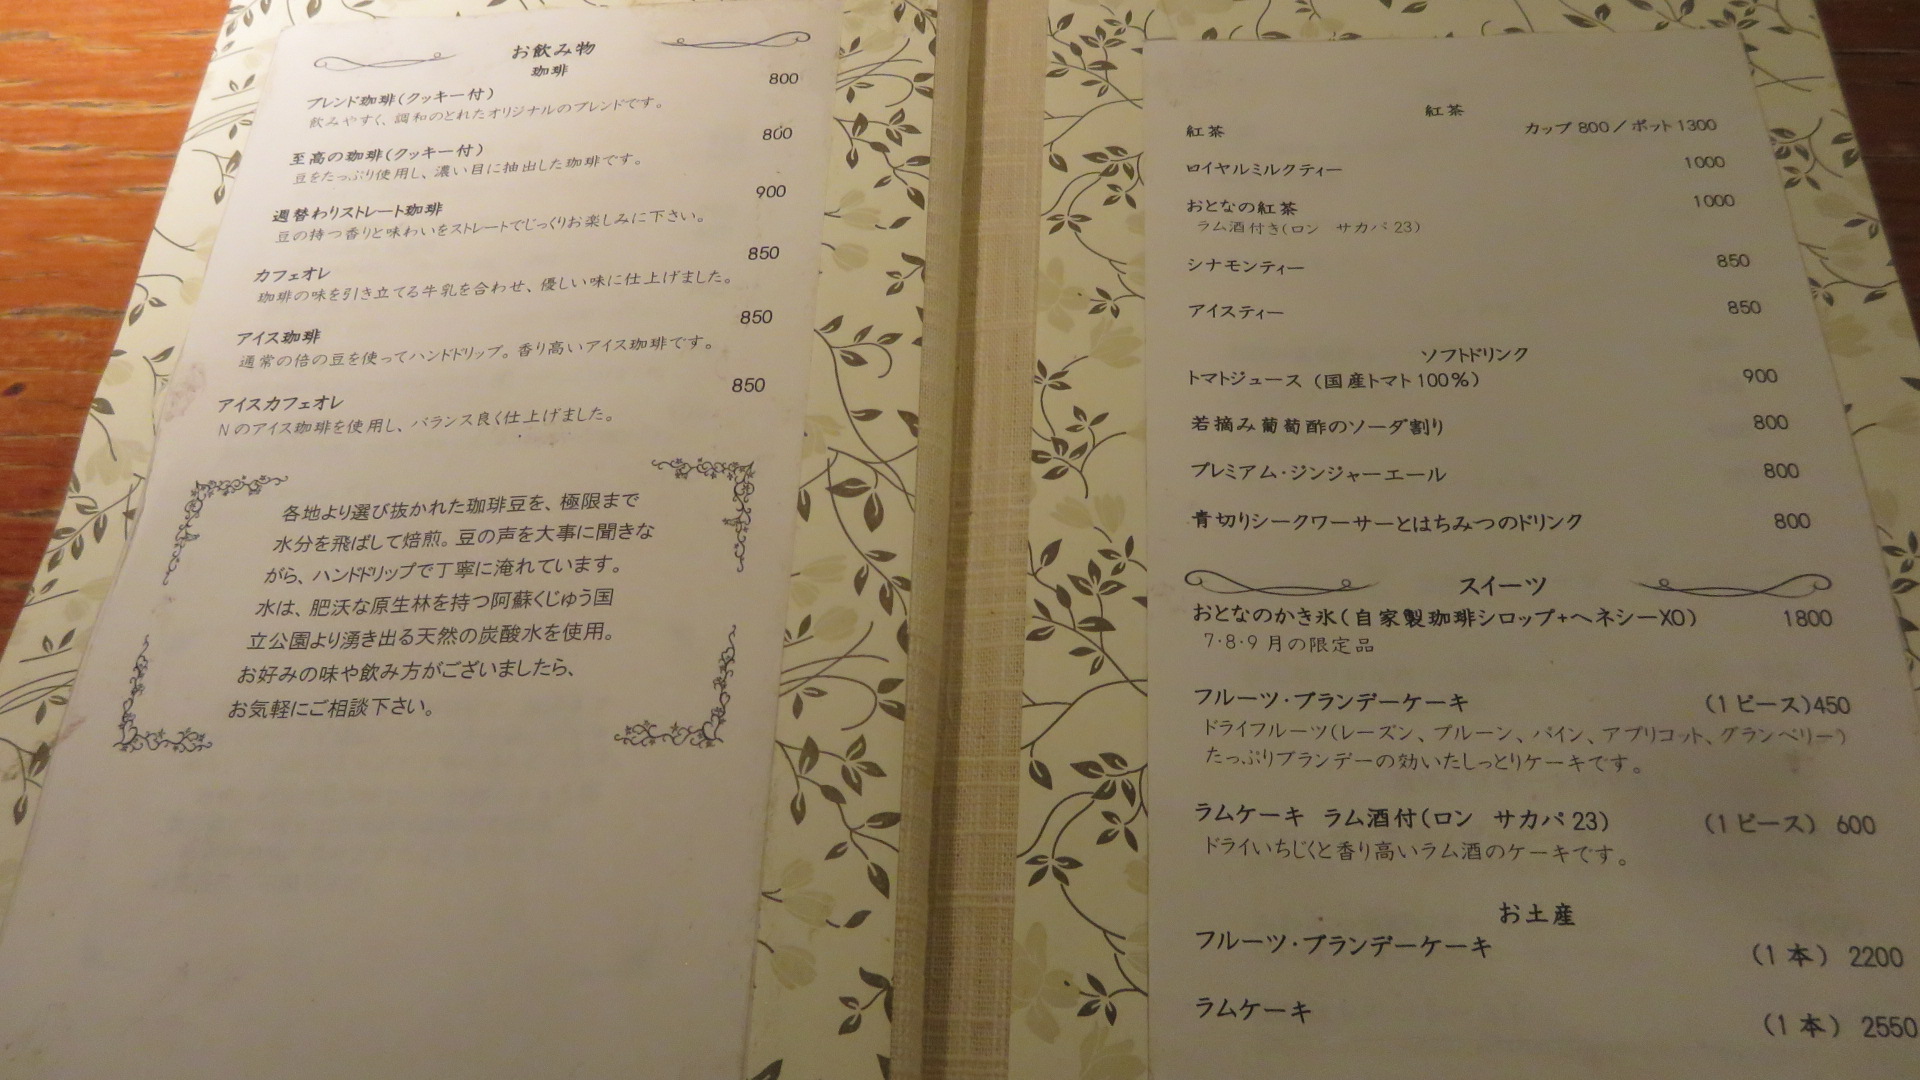 お飲み物
珈琲
ブレンド珈琲(クッキー付) 800
飲みやすく、調和のとれたオリジナルのブレンドです。
至高の珈琲(クッキー付) 800
豆をたっぷり使用し、濃い目に抽出した珈琲です。
週替わりストレート珈琲 900
豆の持つ香りと味わいをストレートでじっくりお楽しみに下さい。
カフェオレ 850
珈琲の味を引き立てる牛乳を合わせ、優しい味に仕上げました。
アイス珈琲 850
通常の倍の豆を使ってハンドドリップ。香り高いアイス珈琲です。
アイスカフェオレ 850
Nのアイス珈琲を使用し、バランス良く仕上げました。
各地より選び抜かれた珈琲豆を、極限まで
水分を飛ばして焙煎。豆の声を大事に聞きな
がら、ハンドドリップで丁寧に淹れています。
水は、肥沃な原生林を持つ阿蘇くじゅう国
立公園より湧き出る天然の炭酸水を使用。
お好みの味や飲み方がございましたら、
お気軽にご相談下さい。
紅茶
紅茶 カップ 800/ポット1300
ロイヤルミルクティー 1000
おとなの紅茶 1000
ラム酒付き(ロン サカパ23)
シナモンティー 850
アイスティー 850
ソフトドリンク
トマトジュース (国産トマト100%) 900
若摘み葡萄酢のソーダ割り 800
プレミアム・ジンジャーエール 800
青切りシークワーサーとはちみつのドリンク 800
スイーツ
おとなのかき氷(自家製珈琲シロップ+ヘネシーXO) 1800
7・8・9月の限定品
フルーツ・ブランデーケーキ (1ピース)450
ドライフルーツ(レーズン、プルーン、パイン、アプリコット、グランベリー)
たっぷりブランデーの効いたしっとりケーキです。
ラムケーキ ラム酒付(ロン サカパ23) (1ピース) 600
ドライいちじくと香り高いラム酒のケーキです。
お土産
フルーツ・ブランデーケーキ (1本) 2200
ラムケーキ (1本) 2550